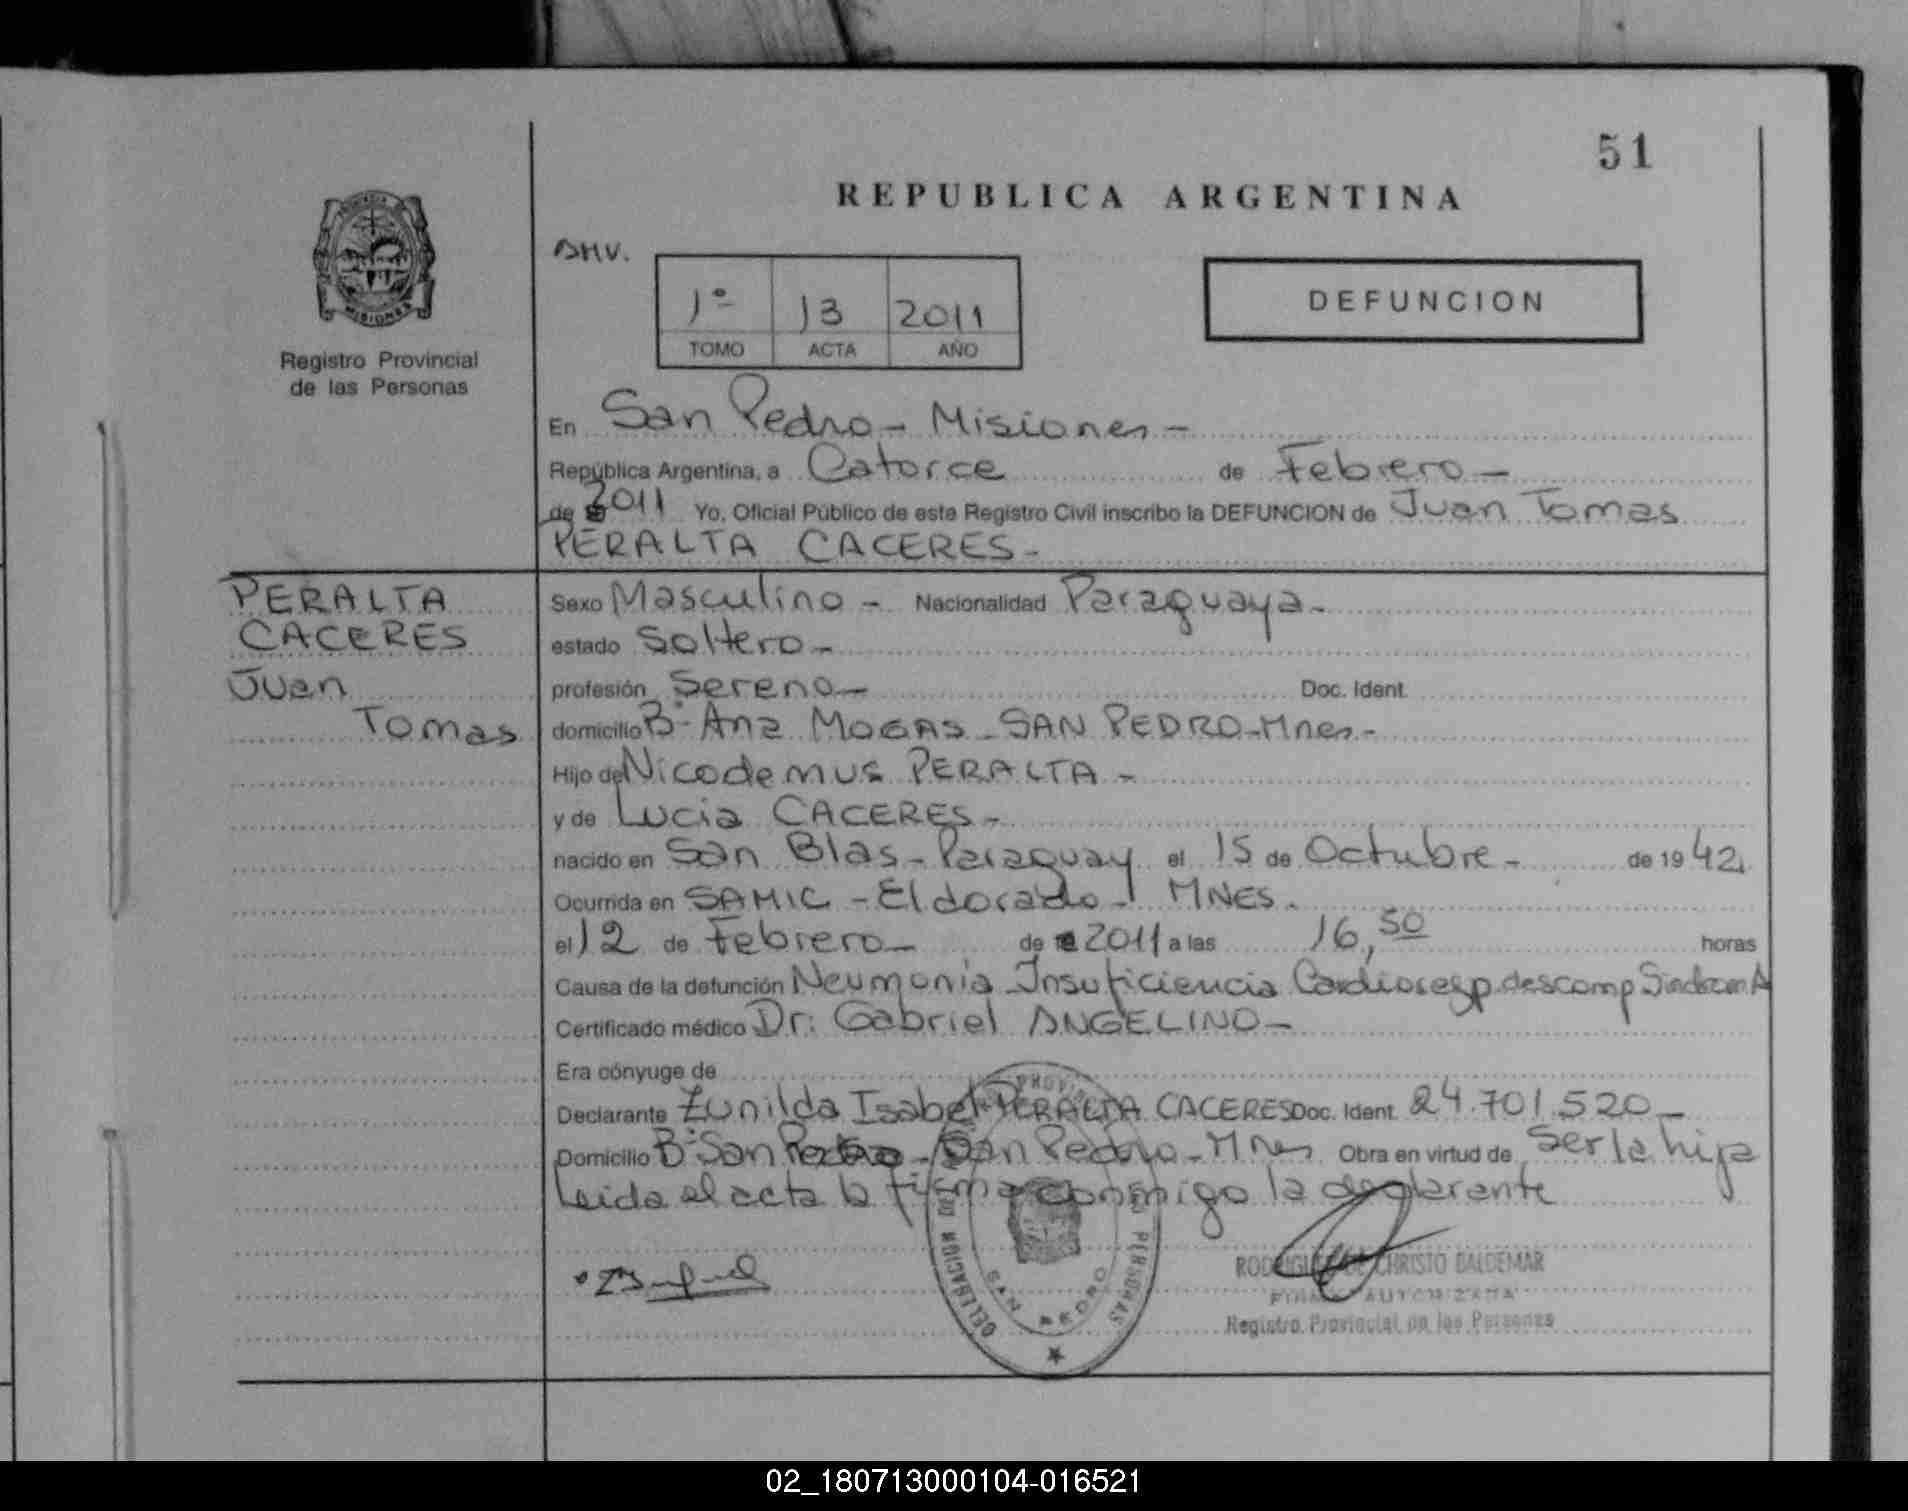 51
REPUBLICA ARGENTINA
MISIONES
Registro Provincial
de las Personas
1º 13 2011
TOMO ACTA AÑO
DEFUNCION
En San Pedro - Misiones -
República Argentina, a Catorce de Febrero -
de 2011 Yo, Oficial Público de este Registro Civil inscribo la DEFUNCION de Juan Tomas
PERALTA CACERES -
PERALTA
CACERES
Juan
Tomas
Sexo Masculino - Nacionalidad Paraguaya -
estado Soltero -
profesión Sereno - Doc. Ident.
domicilio Bº Ana MOGAS - SAN PEDRO - Mnes -
Hijo de Nicodemus PERALTA -
y de Lucia CACERES -
nacido en San Blas - Paraguay el 15 de Octubre - de 19 42
Ocurrida en SAMIC - Eldorado - MNES -
el 12 de Febrero - de 2011 a las 16,50 horas
Causa de la defunción Neumonia - Insuficiencia Cardioresp. descomp
Certificado médico Dr: Gabriel ANGELINO -
Era cónyuge de
Declarante Zunilda Isabel PERALTA CACERES Doc. Ident. 24.701.520 -
Domicilio Bº San Pedro - San Pedro - Mnes Obra en virtud de Ser la hija
Leida el acta la firma conmigo la declarante
DELEGACION SAN PEDRO
PERSONAS
CHRISTO BALDEMAR
FIRMA AUTORIZADA
Registro Provincial de las Personas
02_180713000104-016521